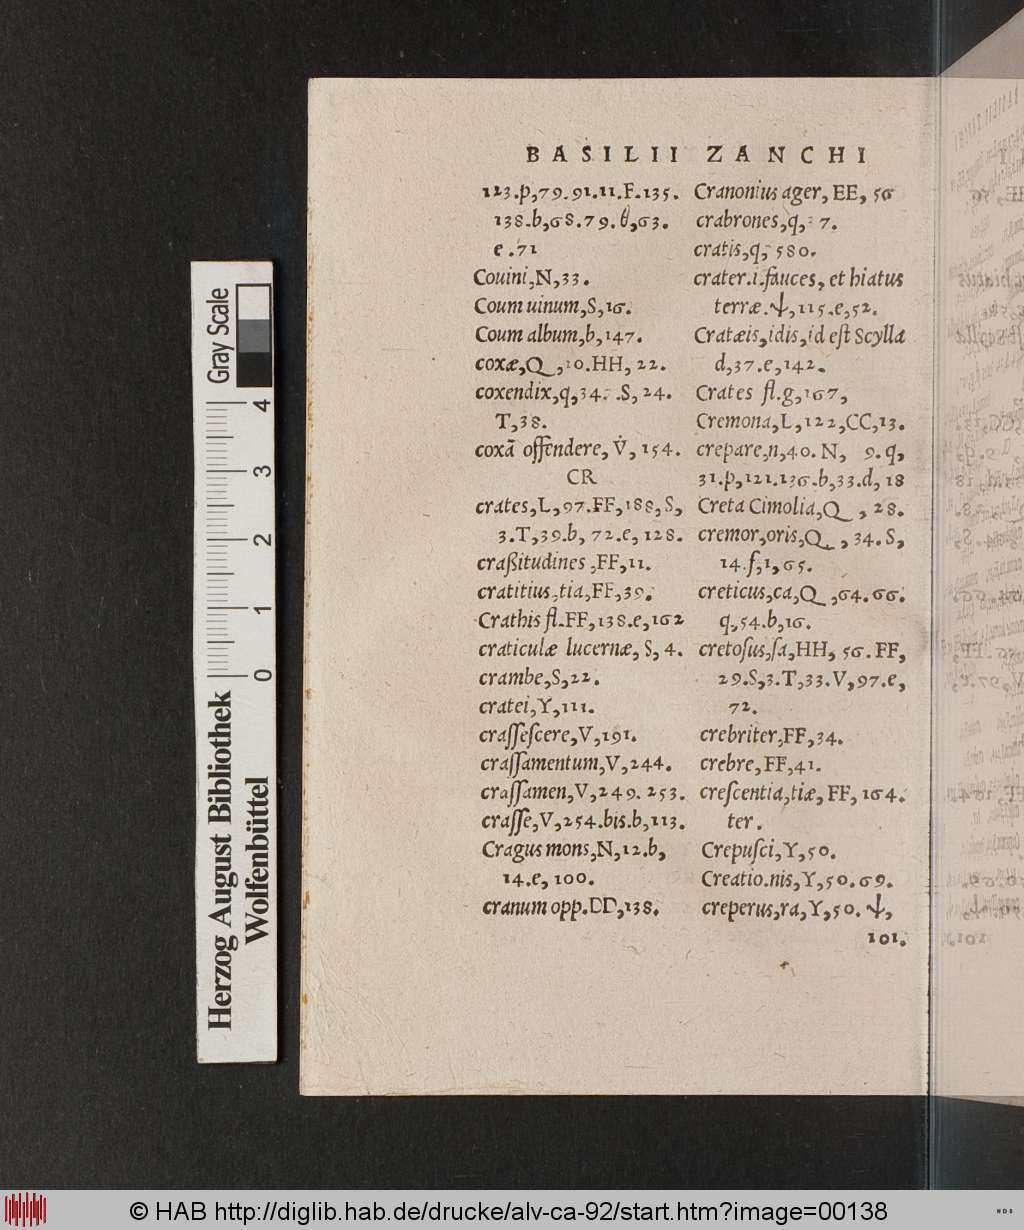 BASILII ZANCHI
123.p,79.91.11.F.135.
138.b,68.79.θ,63.
e.71
Couini,N,33.
Coum uinum,S,16.
Coum album,b,147.
coxæ,Q,10.HH,22.
coxendix,q,34. .S,24.
T,38.
coxā offendere, V, 154.
CR
crates,L,97.FF,188,S,
3.T,39.b, 72.e, 128.
craßitudines,FF,11.
cratitius,tia,FF,39.
Crathis fl.FF,138.e,162
craticulæ lucernæ, S, 4.
crambe,S,22.
cratei,Y,111.
craſſeſcere,V,191.
craſſamentum,V,244.
craſſamen,V,249. 253.
craſſe,V,254.bis.b,113.
Cragus mons,N,12.b,
14.e, 100.
cranum opp.DD,138.
Cranonius ager, EE, 56
crabrones,q, 7.
cratis,q, 580.
crater.i.fauces, et hiatus
terræ.ψ,115.e,52.
Cratæis,idis,id eſt Scylla
d,37.e,142.
Crates fl.g,167,
Cremona,L,122,CC,13.
crepare,n,40. N, 9.q,
31.p,121.136.b,33.d, 18
Creta Cimolia,Q, 28.
cremor,oris,Q, 34. S,
14.f,1,65.
creticus,ca,Q,64.66.
q,54.b,16.
cretoſus,ſa,HH, 56. FF,
29.S,3.T,33.V,97.e,
72.
crebriter,FF,34.
crebre,FF,41.
creſcentia,tiæ, FF, 164.
ter.
Crepuſci,Y,50.
Creatio.nis,Y,50.69.
creperus,ra,Y,50. ψ,
101.
Gray Scale
4
3
2
1
0
Herzog August Bibliothek
Wolfenbüttel
© HAB http://diglib.hab.de/drucke/alv-ca-92/start.htm?image=00138
WDB